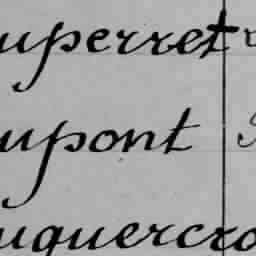 uperret
upont
uquercro